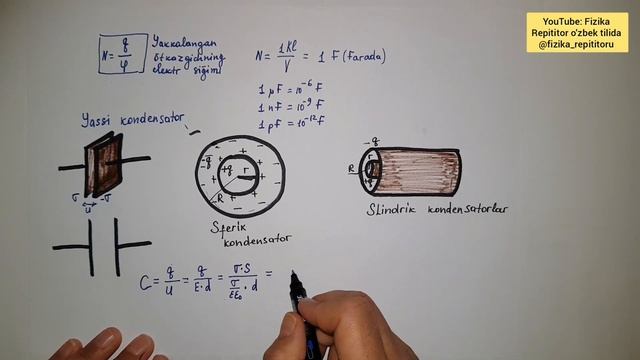 YouTube: Fizika
Repititor o'zbek tilida
@fizika_repititoru
N = q/φ
Yakkalangan
ötkazgichning
elektr sig'imi
N = 1Kl/V = 1 F (Farada)
1 μF = 10⁻⁶ F
1 nF = 10⁻⁹ F
1 pF = 10⁻¹² F
Yassi kondensator
σ u -σ
-q +q r R
Sferik
kondensator
-q R r
Slindrik kondensatorlar
C = q/u = q/(E·d) = (σ·S)/(σ/(εε₀)·d) =